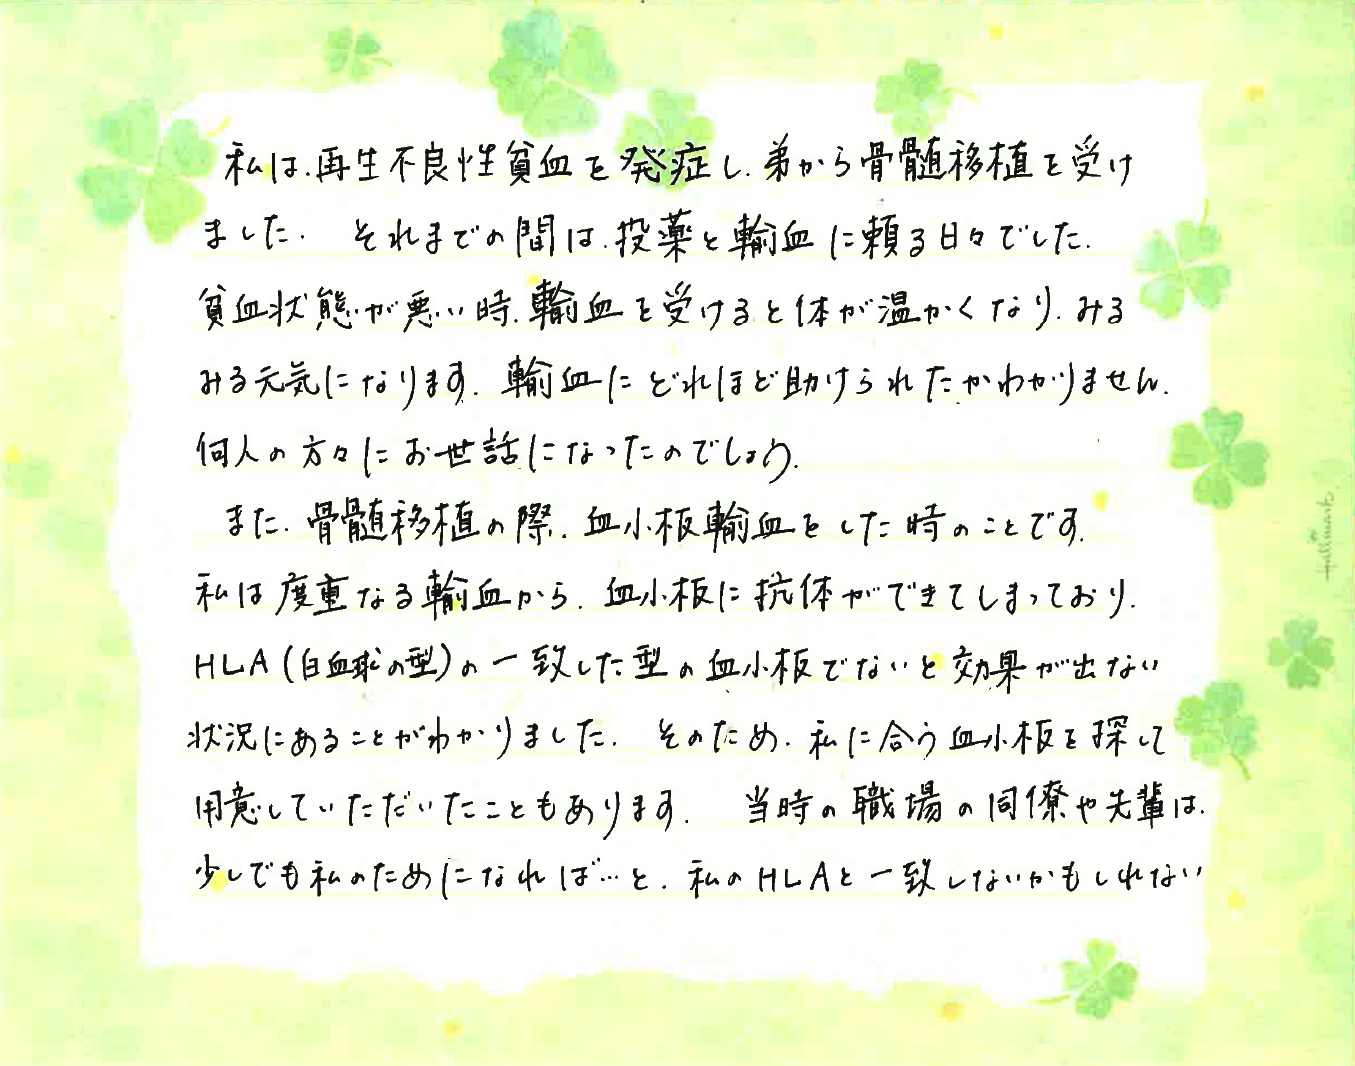 私は、再生不良性貧血を発症し、弟から骨髄移植を受け
ました。 それまでの間は、投薬と輸血に頼る日々でした。
貧血状態が悪い時、輸血を受けると体が温かくなり、みる
みる元気になります。輸血にどれほど助けられたかわかりません。
何人の方々にお世話になったのでしょう。
また、骨髄移植の際、血小板輸血をした時のことです。
私は度重なる輸血から、血小板に抗体ができてしまっており、
HLA(白血球の型)の一致した型の血小板でないと効果が出ない
状況にあることがわかりました。 そのため、私に合う血小板を探して
用意していただいたこともあります。 当時の職場の同僚や先輩は、
少しでも私のためになれば…と、私のHLAと一致しないかもしれない
Hallmark